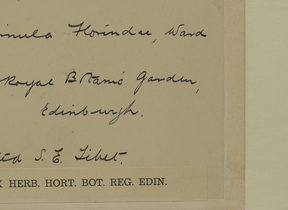 Florindae, Ward
Royal Botanic Garden,
Edinburgh.
S. E. Tibet.
HERB. HORT. BOT. REG. EDIN.